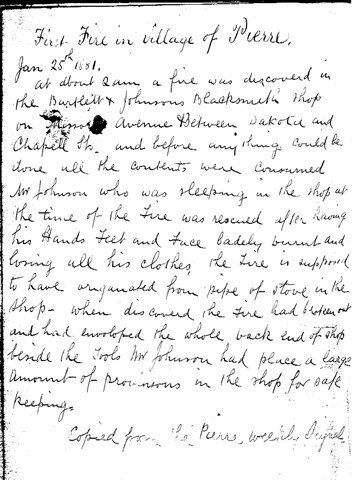 First Fire in village of Pierre.
Jan 25th 1881.
at about 2 am a fire was discoverd in
the Bartlett & Johnsons Blacksmith shop
on Avenue Between Dakota and
Chapell Sts. and before anything could be
done all the contents were consumed
Mr Johnson who was sleeping in the shop at
the time of the Fire was rescued after having
his Hands Feet and Face badely burnt and
losing all his clothes, the Fire is supposed
to have origanated from pipe of stove in the
shop - when discoverd the Fire had broken out
and had enveloped the whole back end of shop
beside the Tools Mr Johnson had place a large
amount of provisions in the shop for safe
keeping
Copied from the Pierre, weekly